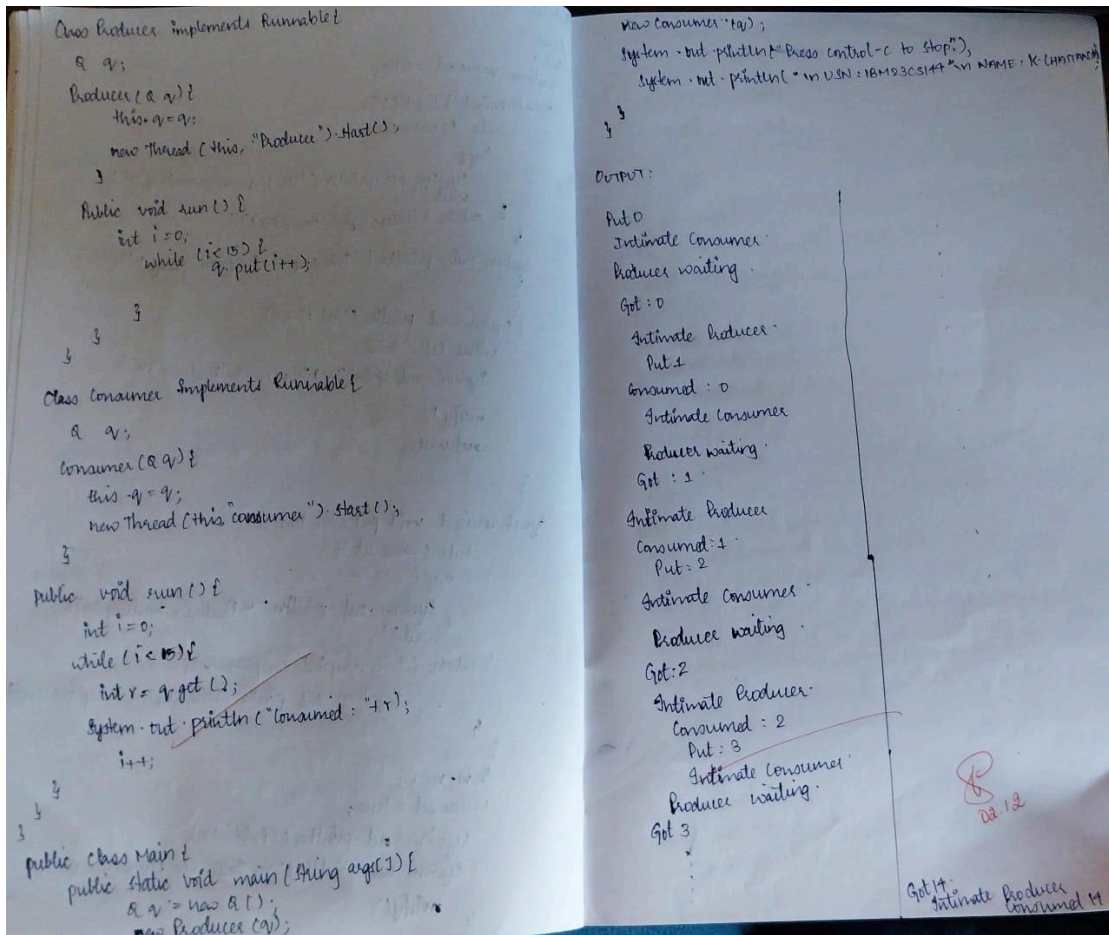 Class Producer implements Runnable {
Q q;
Producer (Q q) {
this.q = q;
new Thread (this, "Producer").start();
}
Public void run() {
int i=0;
while (i<15) {
q.put(i++);
}
}
}
Class Consumer Implements Runnable {
Q q;
Consumer (Q q) {
this.q = q;
new Thread (this, "consumer").start();
}
public void run() {
int i=0;
while (i<15) {
int r = q.get();
System.out.println ("Consumed : "+r);
i++;
}
}
}
public class Main {
public static void main (String args[]) {
Q q = new Q();
new Producer (q);
new Consumer (q);
System.out.println ("Press control-c to stop.");
System.out.println ("\n USN : 1BM23CS144 \n NAME : K.
}
}
OUTPUT:
Put 0
Intimate Consumer
Producer waiting.
Got : 0
Intimate Producer.
Put 1
Consumed : 0
Intimate Consumer
Producer waiting.
Got : 1
Intimate Producer
Consumed : 1
Put : 2
Intimate Consumer
Producer waiting.
Got : 2
Intimate Producer.
Consumed : 2
Put : 3
Intimate Consumer
Producer waiting.
Got 3
02.12
Got 14.
Intimate Producer
Consumed 14